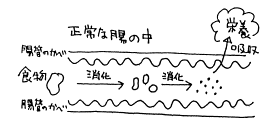 正常な腸の中
栄養
吸収
腸管のかべ
食物
消化
消化
腸管のかべ